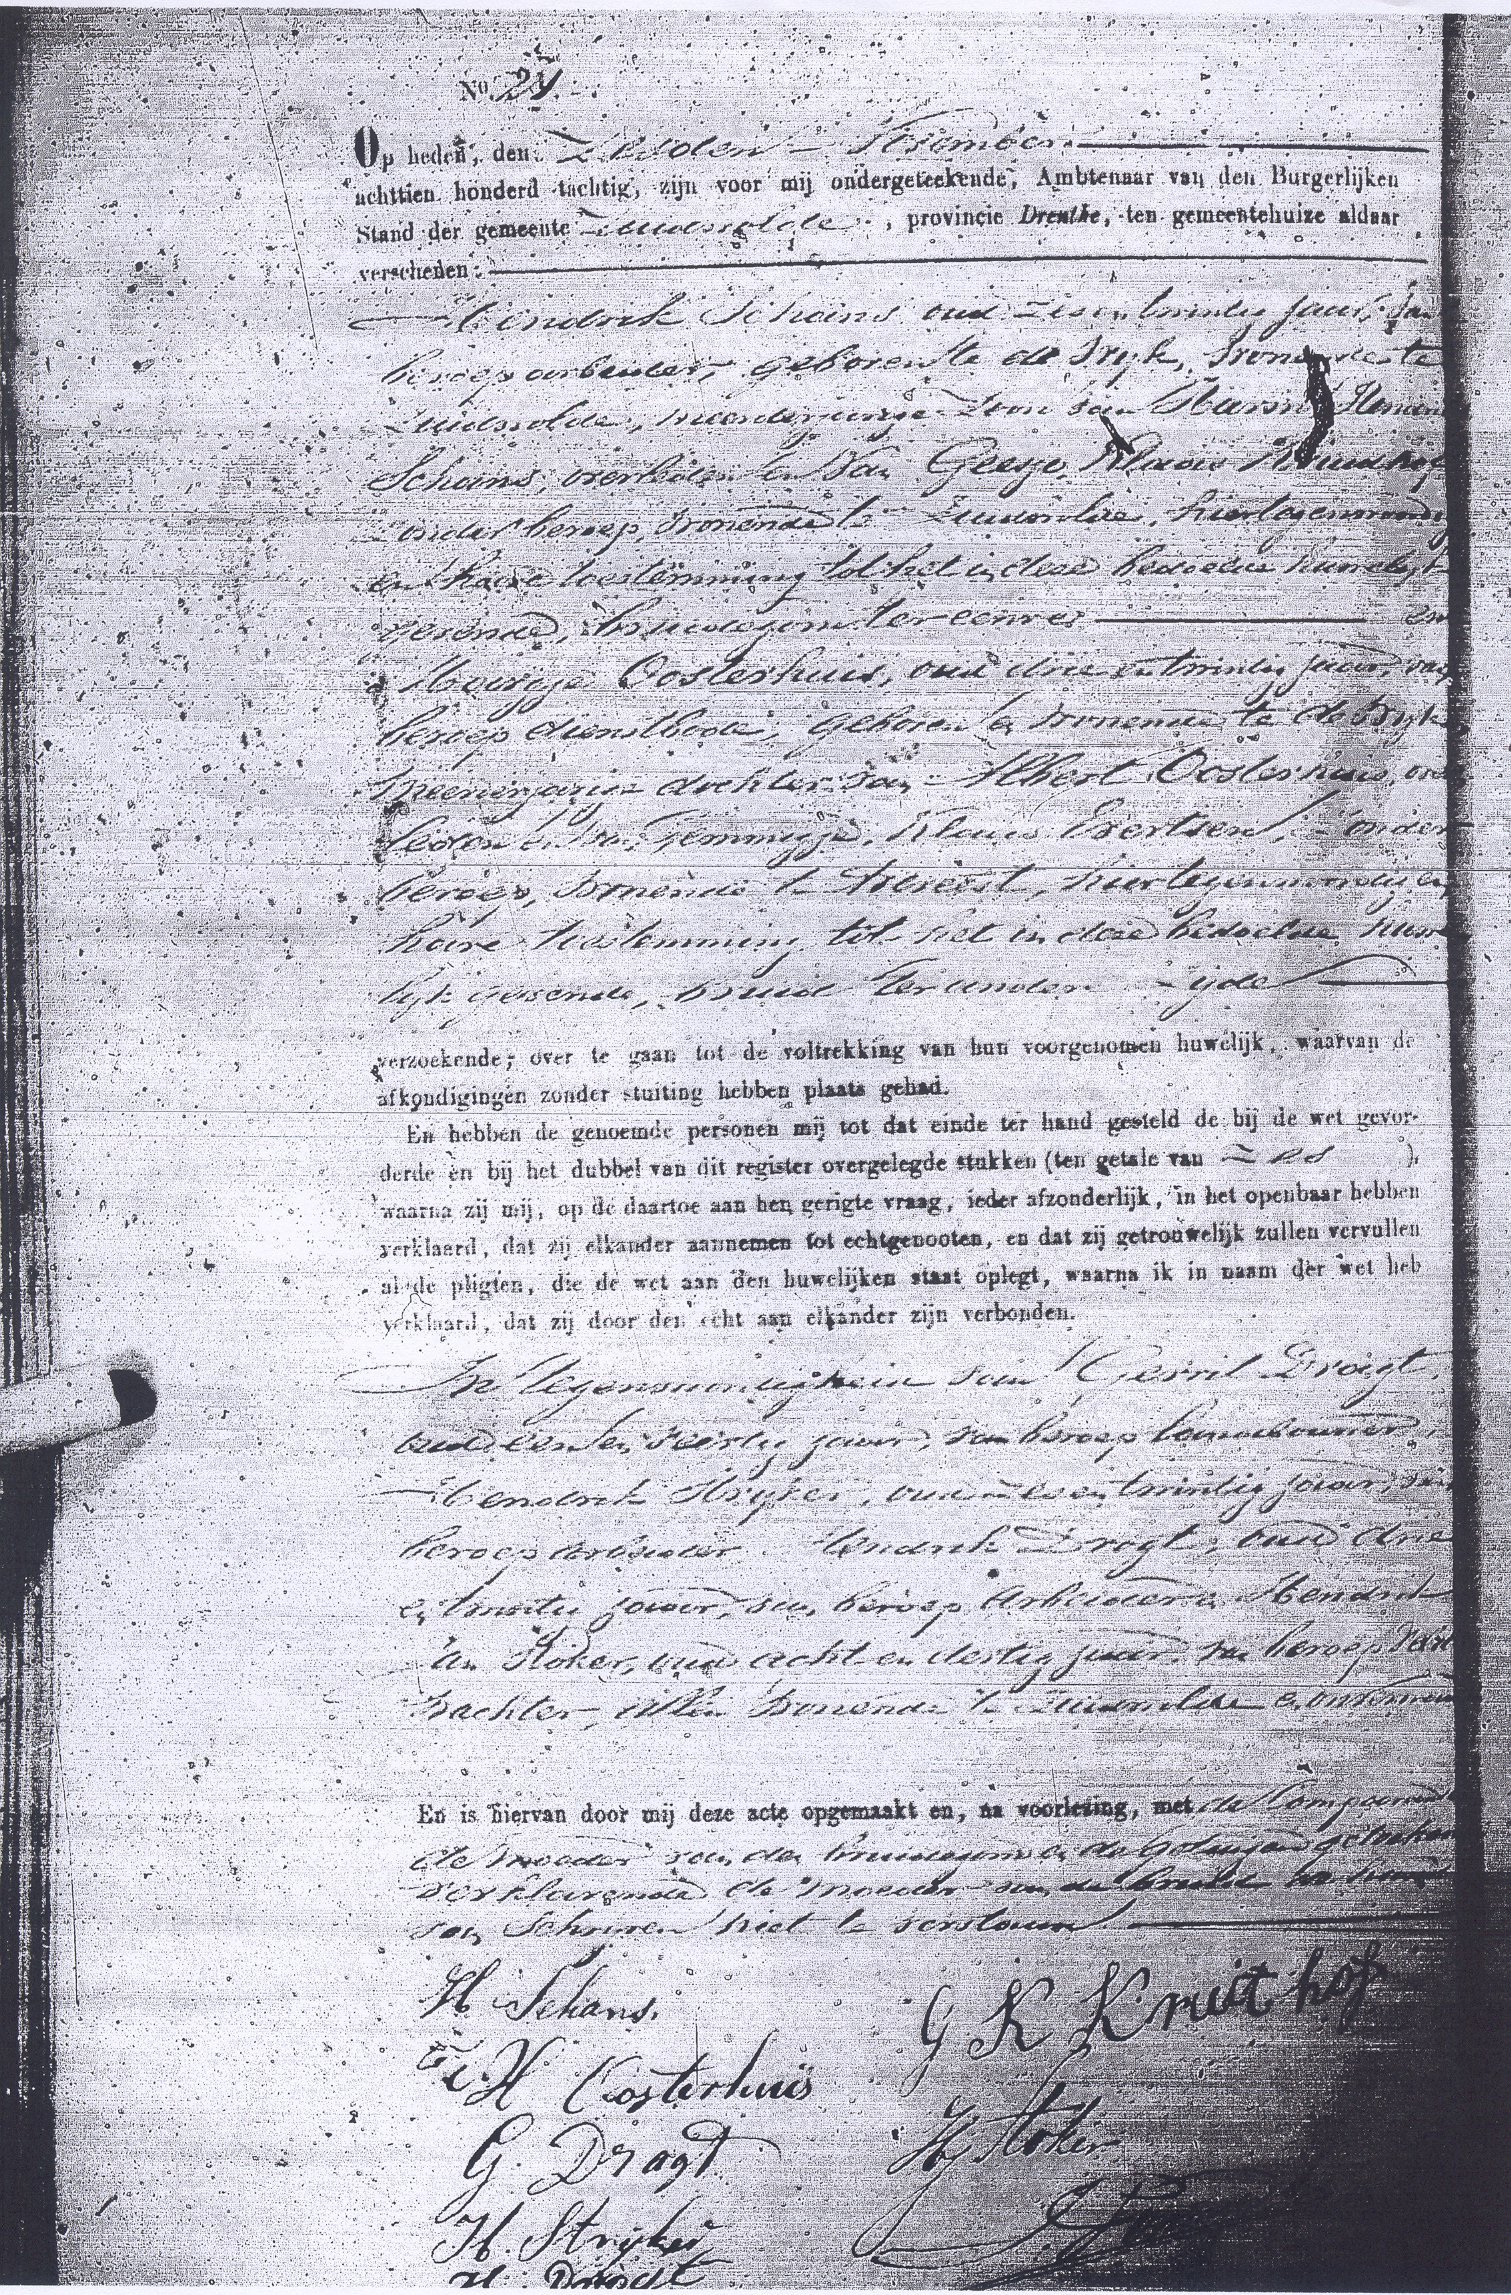 No. 24.
Op heden, den Zesden November
achttien honderd tachtig, zijn voor mij ondergeteekende, Ambtenaar van den Burgerlijken
Stand der gemeente Zuidwolde, provincie Drenthe, ten gemeentehuize aldaar
verschenen:
Hendrik Schans oud zes en twintig jaar, van
beroep arbeider, geboren te de Wijk, wonende te
Zuidwolde, meerderjarige zoon van Harm
Schans, overleden en van Geesje Klaas Kruithof
zonder beroep, wonende te Zuidwolde, hiertegenwoordig
en hare toestemming tot het in deze bedoelde huwelijk
gevende, bruidegom ter eenre en
Oosterhuis, oud drie en twintig jaar, van
beroep dienstbode, geboren en wonende te de Wijk
meerderjarige dochter van Albert Oosterhuis, over
leden en van Jemmigje Klaas Evertsen, zonder
beroep, wonende te Avereest, hiertegenwoordig en
hare toestemming tot het in deze bedoelde huwe
lijk gevende, bruid ter andere zijde
verzoekende, over te gaan tot de voltrekking van hun voorgenomen huwelijk, waarvan de
afkondigingen zonder stuiting hebben plaats gehad.
En hebben de genoemde personen mij tot dat einde ter hand gesteld de bij de wet gevor-
derde en bij het dubbel van dit register overgelegde stukken (ten getale van zes ),
waarna zij mij, op de daartoe aan hen gerigte vraag, ieder afzonderlijk, in het openbaar hebben
verklaard, dat zij elkander aannemen tot echtgenooten, en dat zij getrouwelijk zullen vervullen
al de pligten, die de wet aan den huwelijken staat oplegt, waarna ik in naam der wet heb
verklaard, dat zij door den echt aan elkander zijn verbonden.
In tegenwoordigheid van Gerrit Dragt,
oud een en veertig jaar, van beroep landbouwer,
Hendrik Strijker, oud zes en twintig jaar, van
beroep arbeider Hendrik Dragt, oud drie
en twintig jaar, van beroep Arbeider en Hendrik
Stoker, oud acht en dertig jaar van beroep veld
wachter, allen wonende te Zuidwolde
En is hiervan door mij deze acte opgemaakt en, na voorlezing, met de Comparanten
de moeder van den bruidegom en de getuigen geteekend
verklarende de moeder van de bruid
van Schrijven niet te verstaan
H Schans.
H Oosterhuis
G K Kruithof
G. Dragt
H Stoker
H. Strijker
H. Dragt